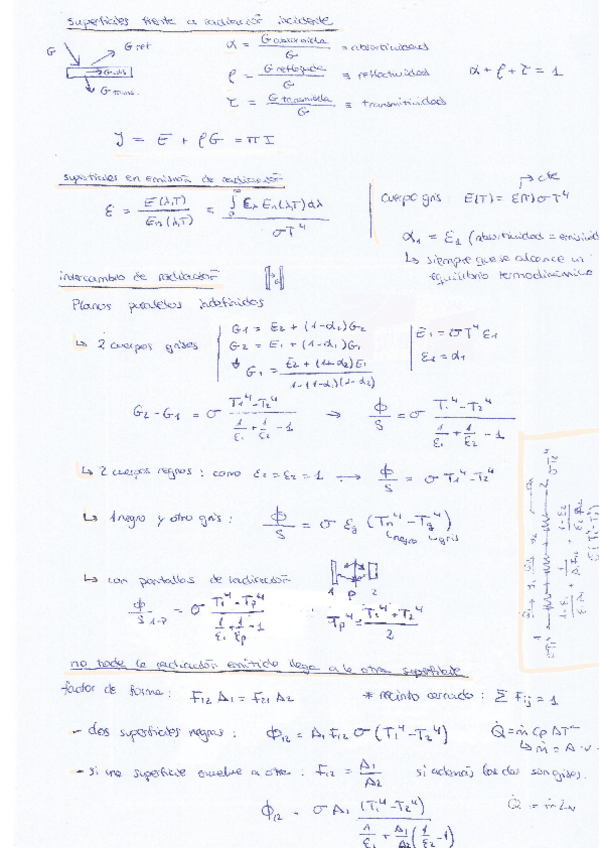 superficies frente a radiación incidente
G
G ref
G abs
G trans.
α = G absorbida / G = absortividades
ρ = G reflejada / G ≡ reflectividad
α + ρ + τ = 1
τ = G transmitida / G ≡ transmitividad
J = E + ρG = πI
superficies en emisión de radiación
ε = E(λ,T) / En(λ,T) = ∫₀^∞ ελ En(λ,T) dλ / σT⁴
cuerpo gris E(T) = ε(T)σT⁴
→ cte
α₁ = ε₁ (absortividad = emisivid
↳ siempre que se alcance un
equilibrio termodinámico
intercambio de radiación
Planos paralelos indefinidos
↳ 2 cuerpos grises
G1 = E2 + (1-α2)G2
G2 = E1 + (1-α1)G1
G1 = E2 + (1-α2)E1 / 1-(1-α1)(1-α2)
E1 = σT⁴ε1
ε1 = α1
G2-G1 = σ T1⁴-T2⁴ / 1/ε1 + 1/ε2 - 1 → Φ/S = σ T1⁴-T2⁴ / 1/ε1 + 1/ε2 - 1
↳ 2 cuerpos negros: como ε1 = ε2 = 1 → Φ/S = σ T1⁴-T2⁴
↳ 1 negro y otro gris: Φ/S = σ εg (Tn⁴-Tg⁴)
↳ negro ↳ gris
↳ con pantallas de radiación
1 P 2
Φ/S 1-P = σ T1⁴-TP⁴ / 1/ε1 + 1/εp - 1
TP⁴ = T1⁴+T2⁴ / 2
no toda la radiación emitida llega a la otra superficie
factor de forma: F12 A1 = F21 A2 * recinto cerrado: Σ Fij = 1
- dos superficies negras: Φ12 = A1 F12 σ (T1⁴-T2⁴)
Q̇ = ṁ Cp ΔT
↳ ṁ = A · v ·
- si una superficie envuelve a otra: F12 = A1/A2 si además las dos son grises.
Φ12 = σ A1 (T1⁴-T2⁴) / 1/ε1 + A1/A2 (1/ε2 - 1)